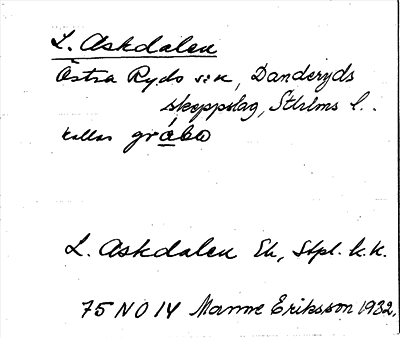 L. Askdalen
Östra Ryds s:n, Danderyds
skeppslag, Sthlms l.
kallas gråbo
L. Askdalen Ek, Stpl. k.k.
75 NO 14 Manne Eriksson 1932.